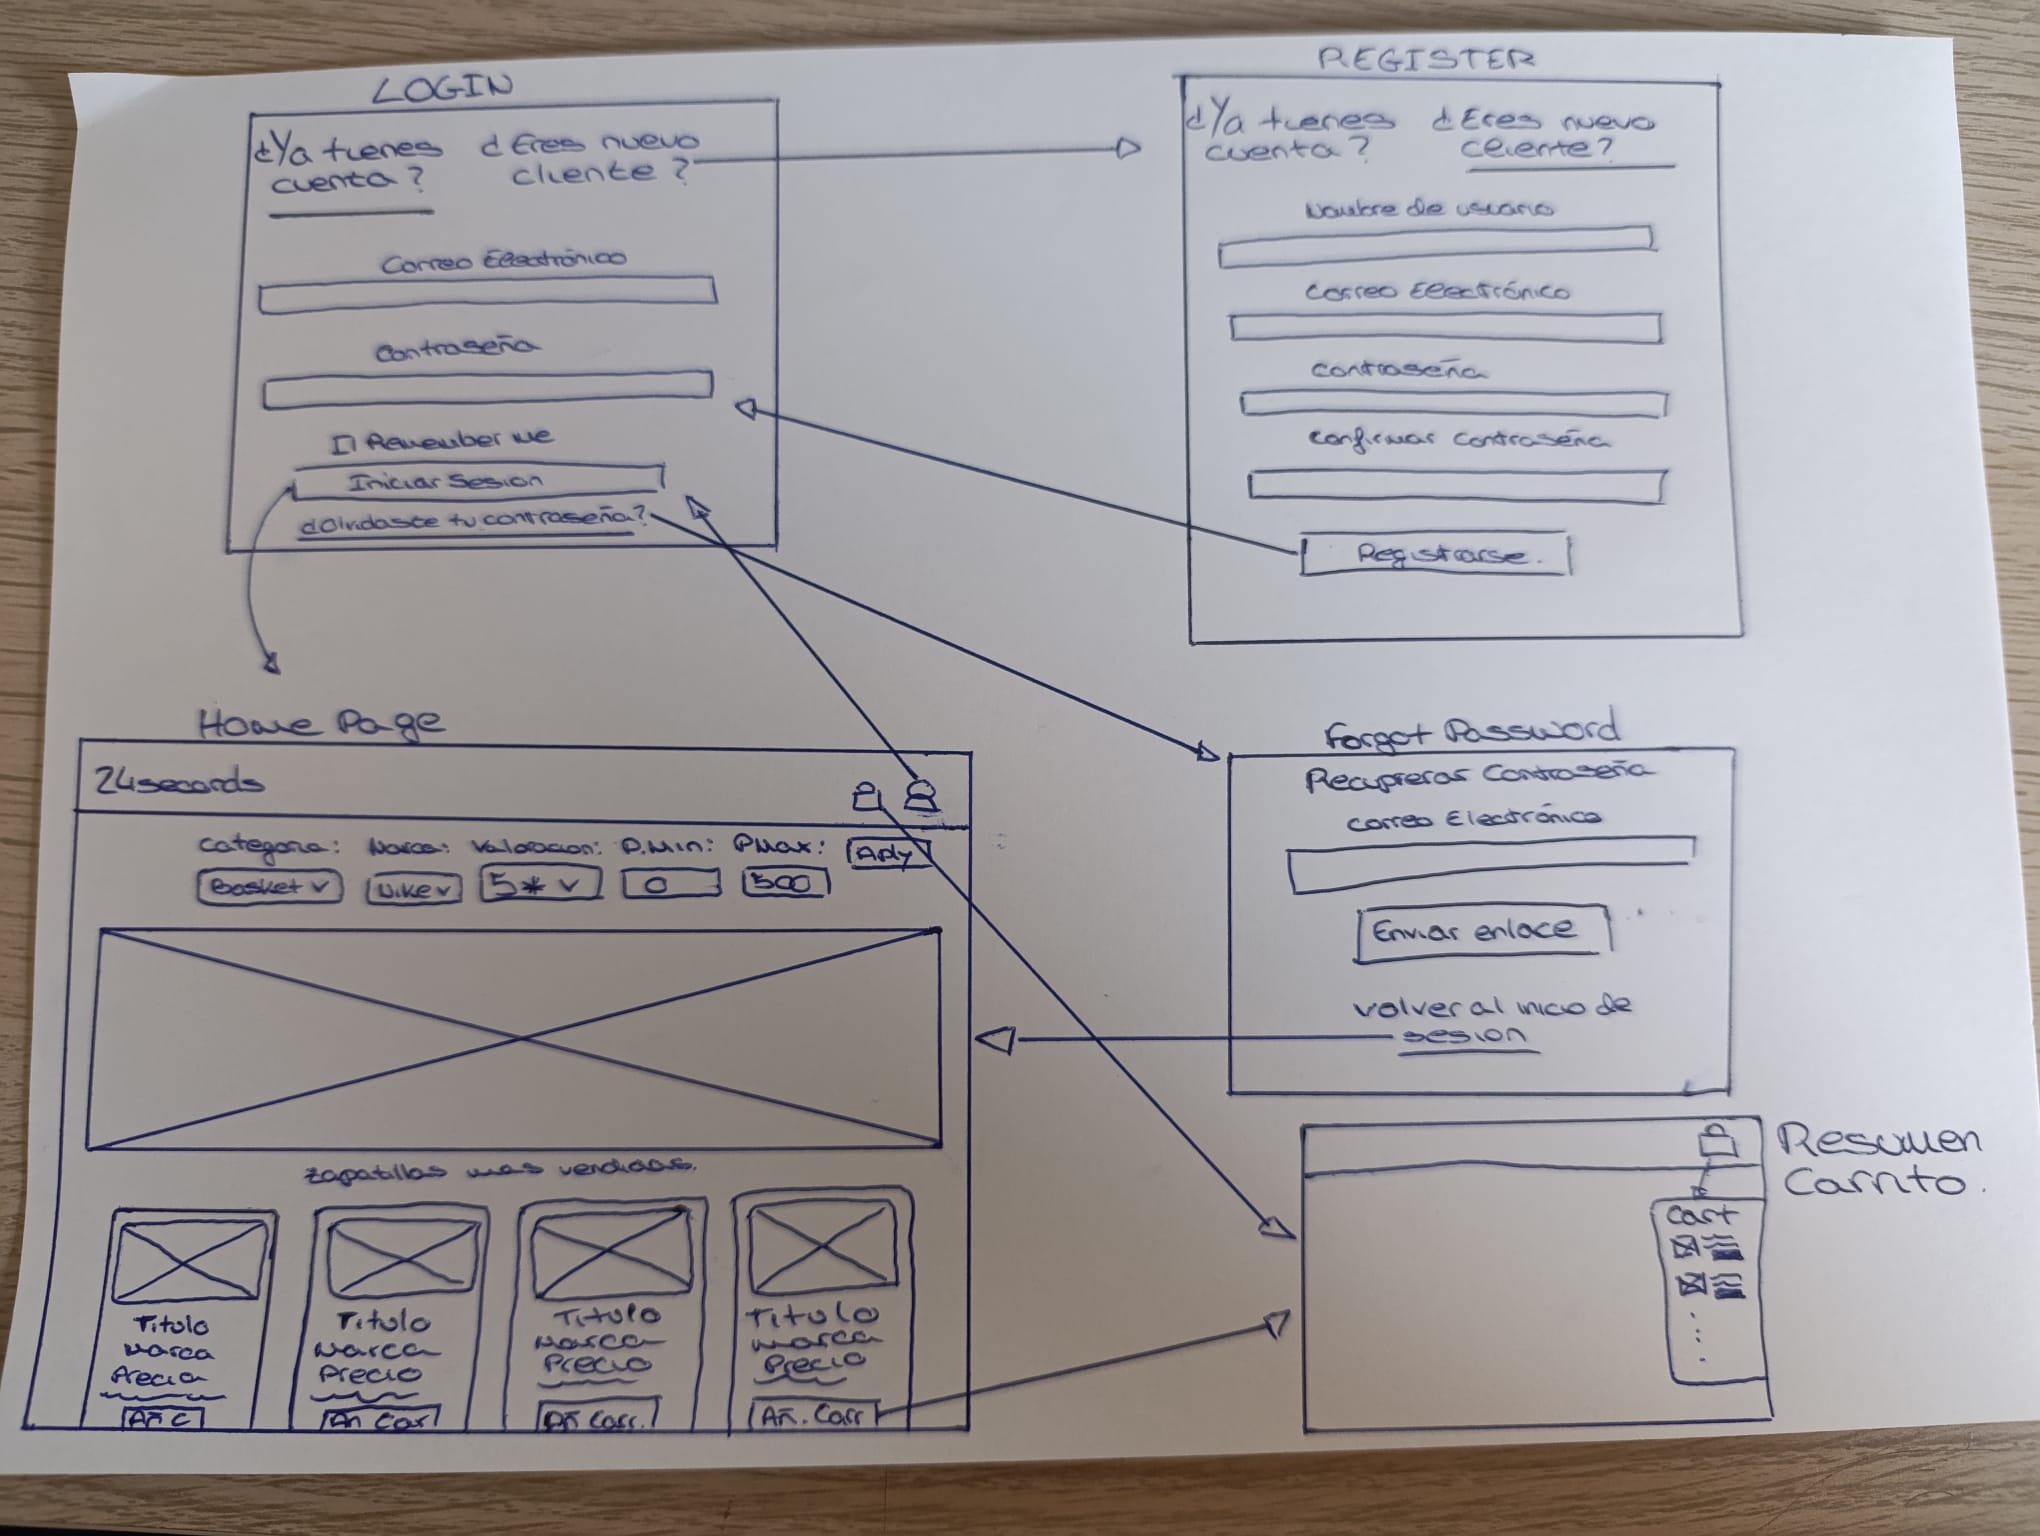 LOGIN
¿Ya tienes
cuenta?
¿Eres nuevo
cliente?
Correo Electrónico
Contraseña
Remember me
Iniciar Sesion
¿Olvidaste tu contraseña?
REGISTER
¿Ya tienes
cuenta?
¿Eres nuevo
cliente?
Nombre de usuario
Correo Electrónico
Contraseña
Confirmar Contraseña
Registrarse.
Home Page
24seconds
Categoria: Marca: Valoracion: P.Min: PMax: Aply
Basket v Nike v 5* v 0 500
Zapatillas mas vendidas.
Titulo
Marca
Precio
Añ C
Titulo
Marca
Precio
Añ Car
Titulo
Marca
Precio
Añ Carr.
Titulo
Marca
Precio
Añ. Carr
Forgot Password
Recuprerar Contraseña
Correo Electrónico
Enviar enlace
volver al inicio de
sesion
Resumen
Carrito.
Cart